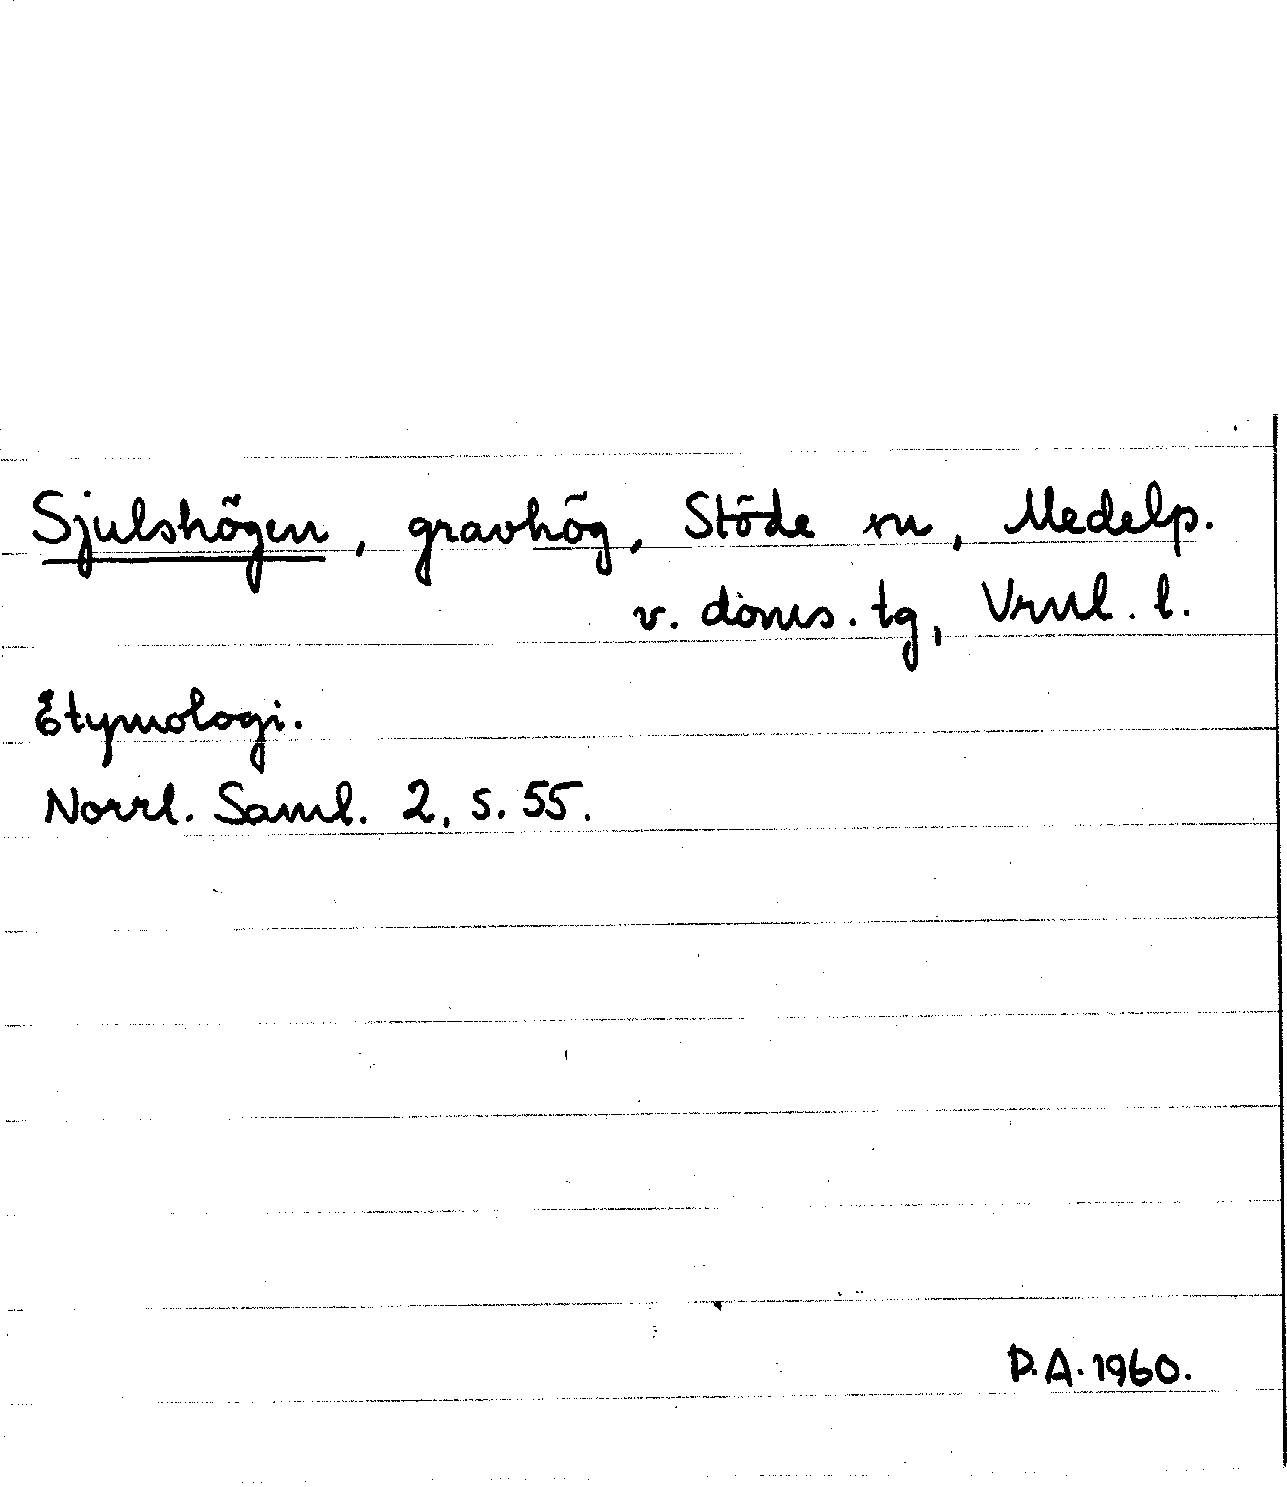 Sjulshögen, gravhög, Stöde sn, Medelp.
v. doms. tg, Vrnl. l.
Etymologi.
Norrl. Saml. 2, s. 55.
D.A. 1960.